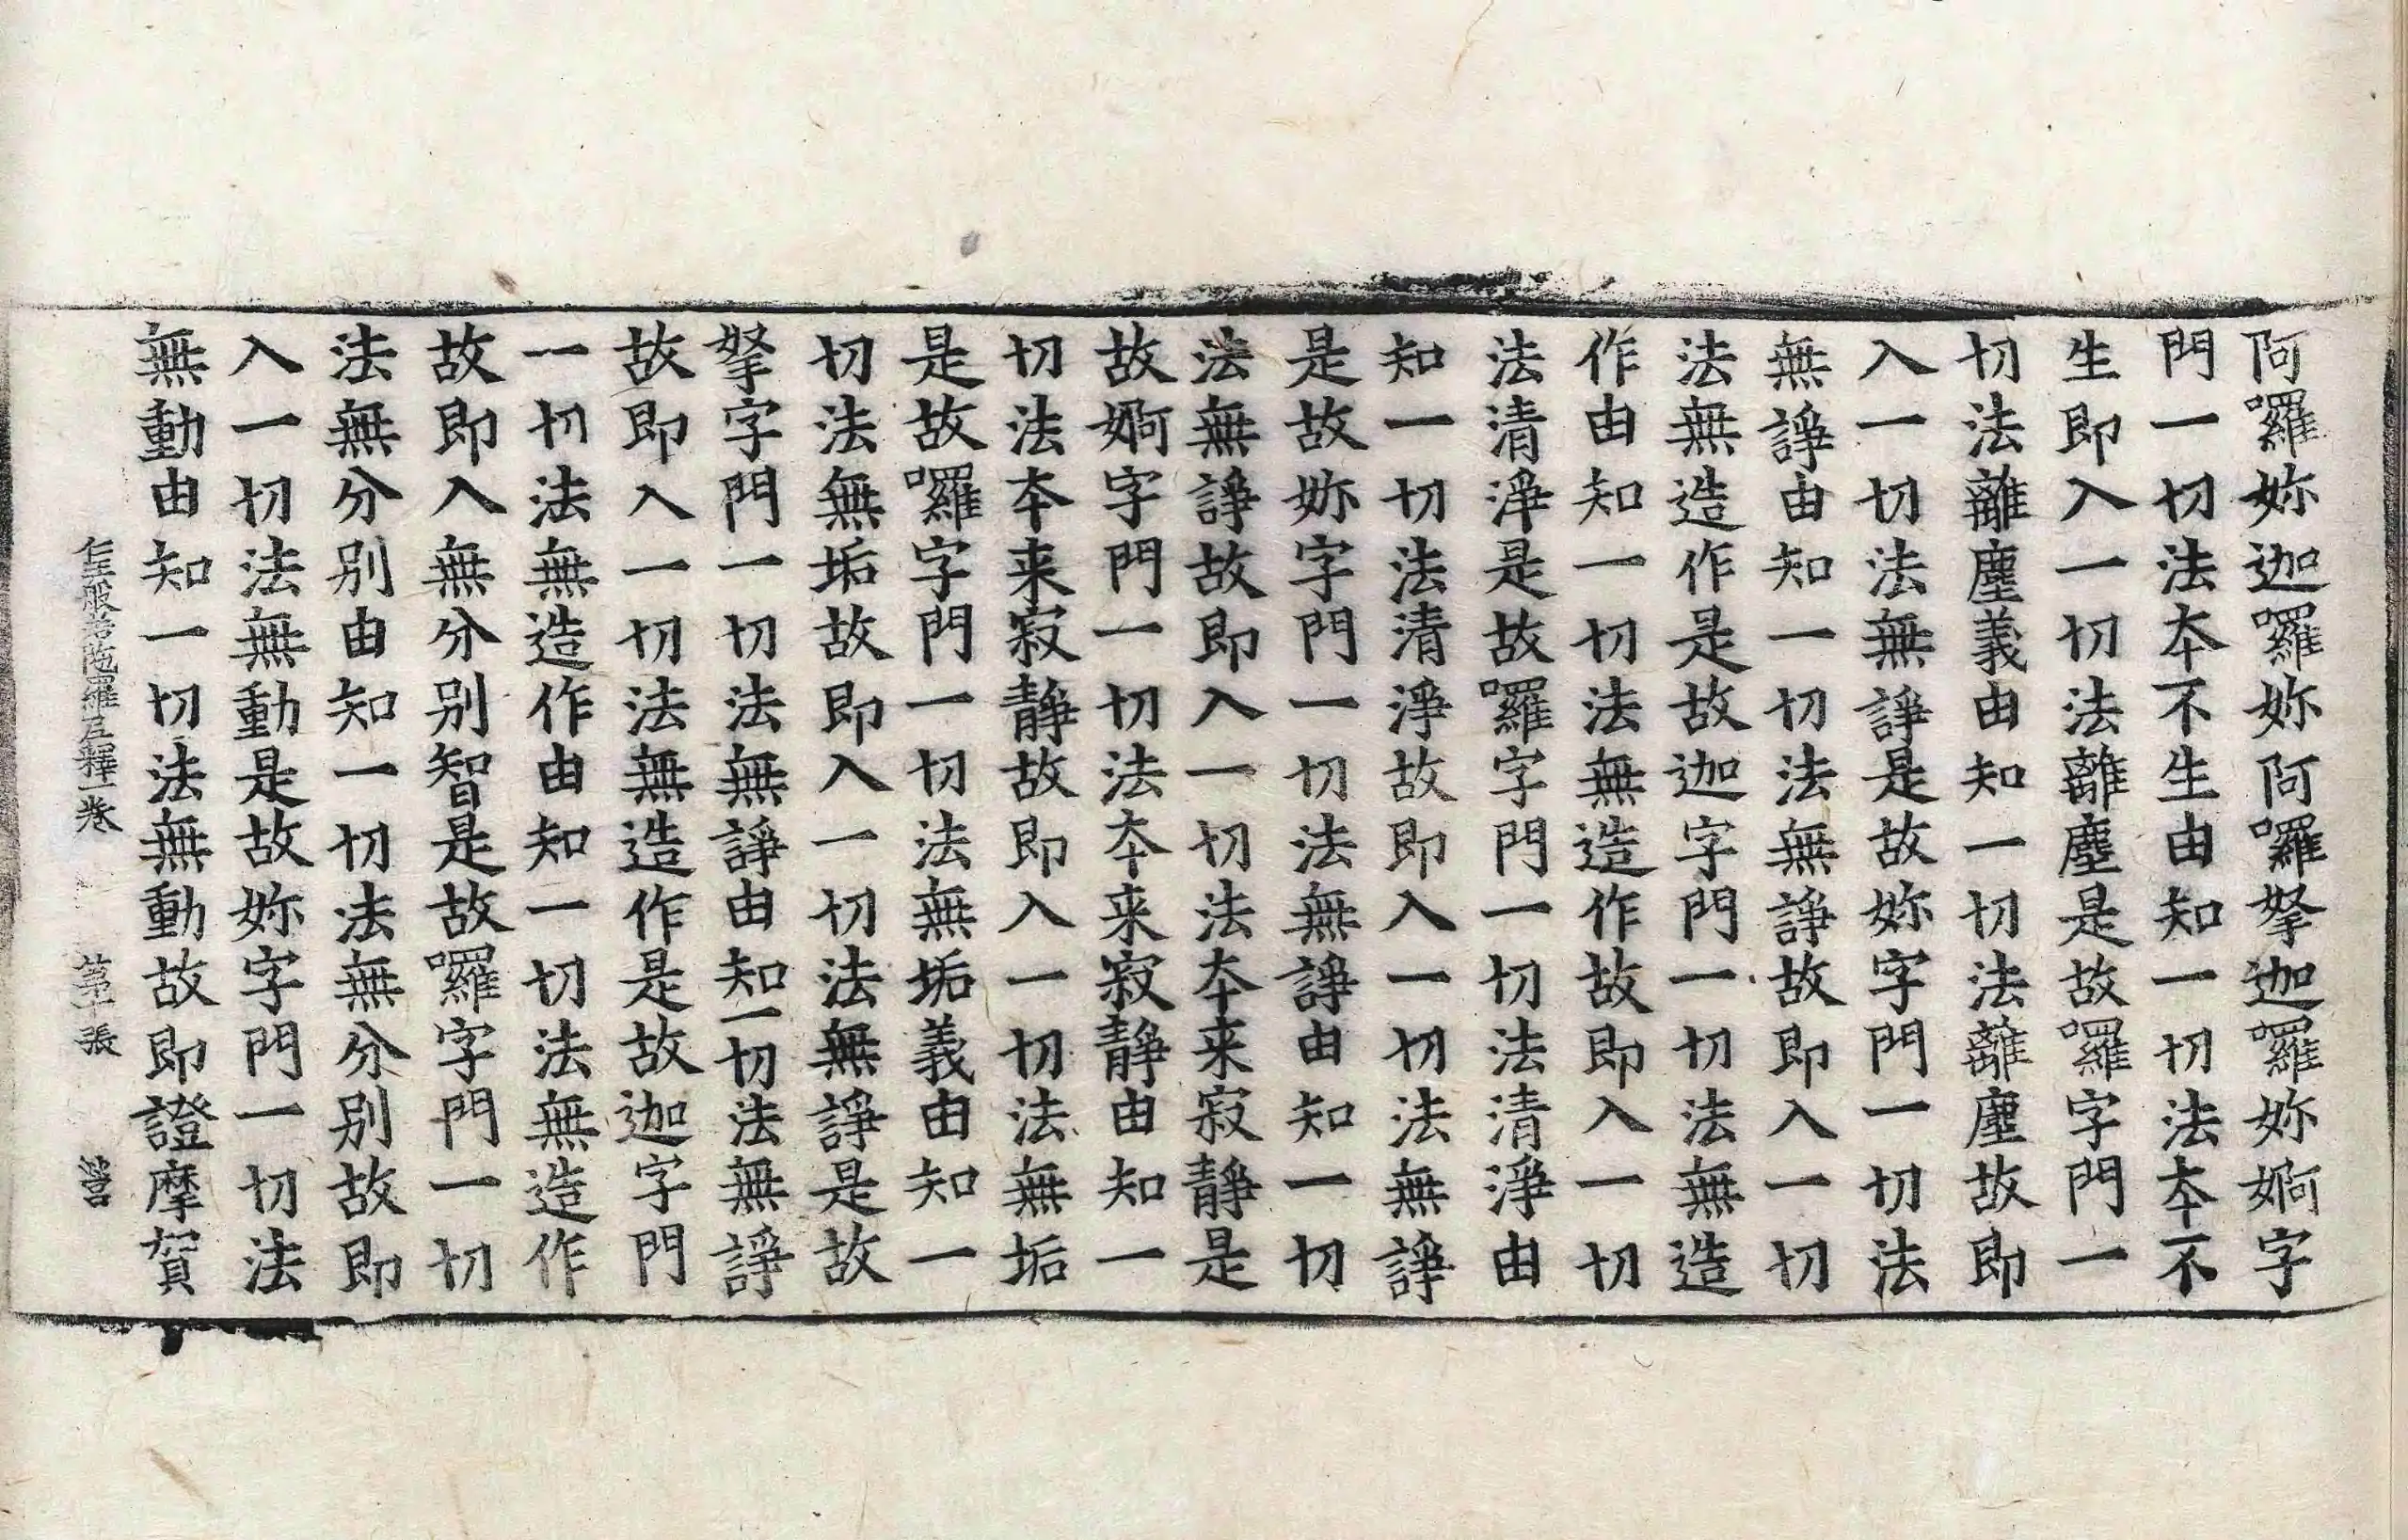 阿囉妳迦囉妳阿囉拏迦囉妳婀字
門一切法本不生由知一切法本不
生即入一切法離塵是故囉字門一
切法離塵義由知一切法離塵故即
入一切法無諍是故妳字門一切法
無諍由知一切法無諍故即入一切
法無造作是故迦字門一切法無造
作由知一切法無造作故即入一切
法清淨是故囉字門一切法清淨由
知一切法清淨故即入一切法無諍
是故妳字門一切法無諍由知一切
法無諍故即入一切法本来寂靜是
故婀字門一切法本来寂靜由知一
切法本来寂靜故即入一切法無垢
是故囉字門一切法無垢義由知一
切法無垢故即入一切法無諍是故
拏字門一切法無諍由知一切法無諍
故即入一切法無造作是故迦字門
一切法無造作由知一切法無造作
故即入無分別智是故囉字門一切
法無分別由知一切法無分別故即
入一切法無動是故妳字門一切法
無動由知一切法無動故即證摩賀
仁王般若陁羅尼釋一卷 第十張 營